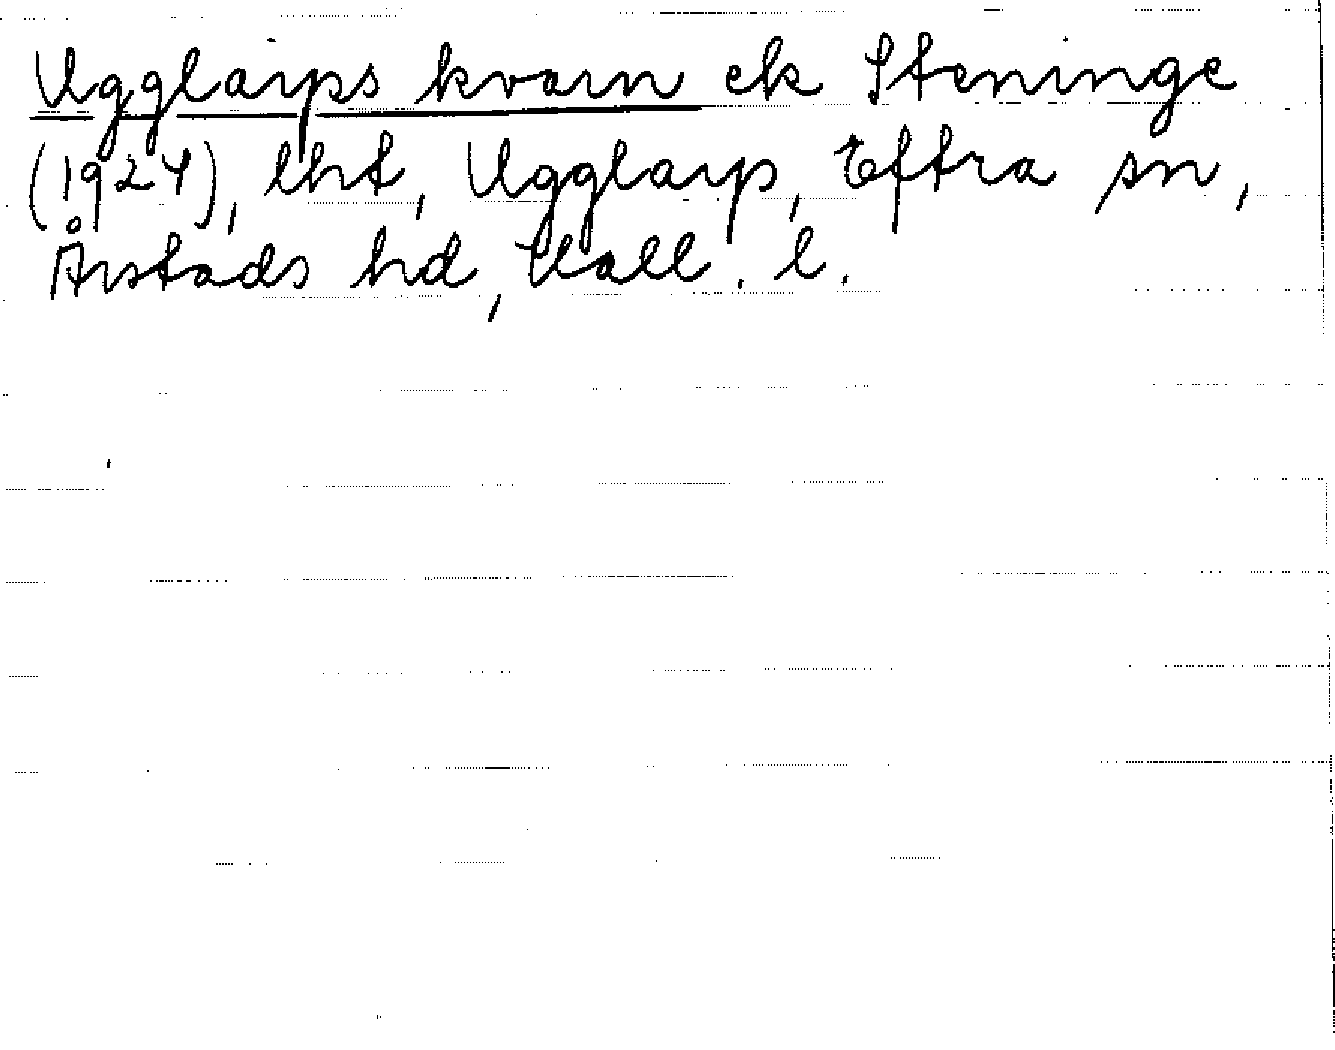 Ugglarps kvarn ek Steninge
(1924), lht, Ugglarp, Eftra sn,
Årstads hd, Hall. l.